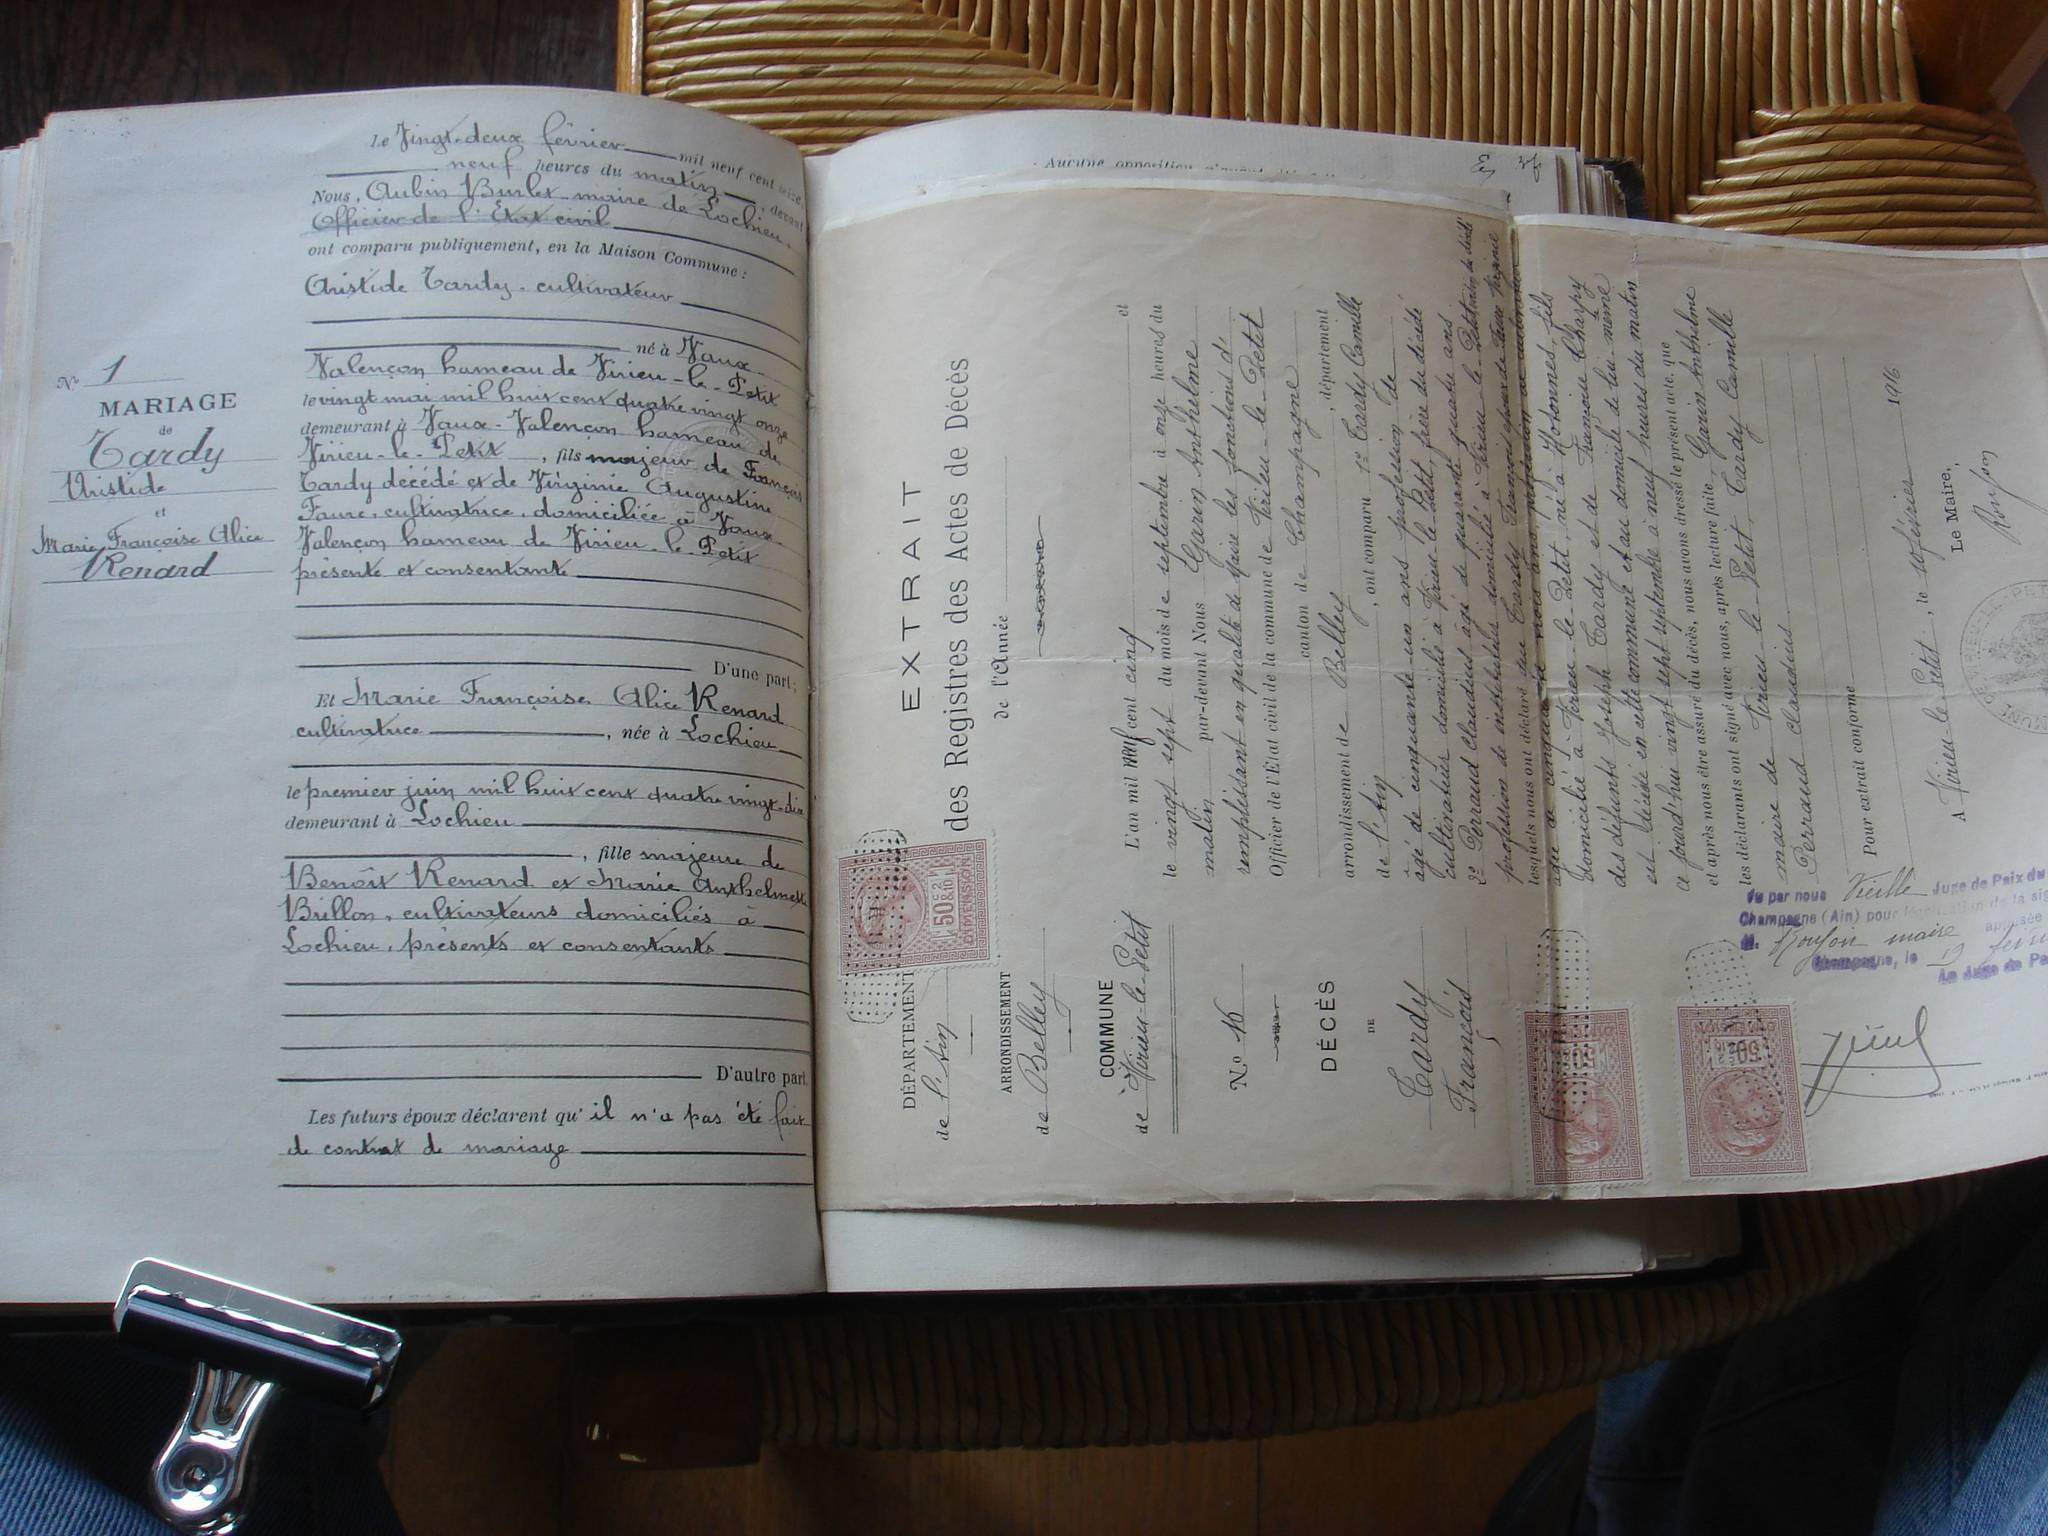 Le Vingt-deux février mil neuf cent seize,
neuf heures du matin, devant
Nous, Aubin Burlet maire de Lochieu,
Officier de l'Etat civil
ont comparu publiquement, en la Maison Commune :
Aristide Tardy - cultivateur
né à Vaux
Valençon hameau de Virieu-le-Petit
le vingt mai mil huit cent quatre vingt onze
demeurant à Vaux-Valençon hameau de
Virieu-le-Petit, fils majeur de François
Tardy décédé et de Virginie Augustine
Faure, cultivatrice, domiciliée à Vaux
Valençon hameau de Virieu-le-Petit
présente et consentante
D'une part;
Et Marie Françoise Alice Renard
cultivatrice, née à Lochieu
le premier juin mil huit cent quatre vingt-dix
demeurant à Lochieu
, fille majeure de
Benoît Renard et Marie Anthelmette
Brillon, cultivateurs domiciliés à
Lochieu, présents et consentants
D'autre part.
Les futurs époux déclarent qu'il n'a pas été fait
de contrat de mariage
N° 1
MARIAGE
de
Tardy
Aristide
et
Marie Françoise Alice
Renard
Aucune opposition
EXTRAIT
des Registres des Actes de Décès
de l'Année
DÉPARTEMENT
de l'Ain
ARRONDISSEMENT
de Belley
COMMUNE
de Virieu-le-Petit
N.º 16
DÉCÈS
DE
Tardy
François
L'an mil neuf cent cinq et
le vingt sept du mois de septembre à onze heures du
matin par-devant Nous Garin Anthelme
remplissant en qualité de Maire les fonctions d'
Officier de l'Etat civil de la commune de Virieu-le-Petit
canton de Champagne
arrondissement de Belley, département
de l'Ain, ont comparu 1º Tardy Camille
âgé de cinquante-un ans profession de
cultivateur domicilié à Virieu-le-Petit, frère du décédé
2º Perraud Claudius âgé de quarante quatre ans
profession de instituteur domicilié à Virieu-le-Petit
lesquels nous ont déclaré que Tardy François époux de Faure Virginie
âgé de cinquante trois ans, profession de cultivateur
domicilié à Virieu-le-Petit, né à Hotonnes, fils
des défunts Joseph Tardy et de Françoise Charpy
est décédé en cette commune et au domicile de lui même
ce jourd'hui vingt sept septembre à neuf heures du matin
et après nous être assuré du décès, nous avons dressé le présent acte, que
les déclarants ont signé avec nous, après lecture faite, Garin Anthelme
maire de Virieu-le-Petit, Tardy Camille
Perraud Claudius.
Pour extrait conforme
A Virieu-le-Petit, le 10 février 1916
Le Maire,
Vu par nous Vieille Juge de Paix du
Champagne (Ain) pour légalisation de la
M. maire apposée
Champagne, le 19
Le Juge de Pa
50c
DIMENSION
DIMENSION
50c
DIMENSION